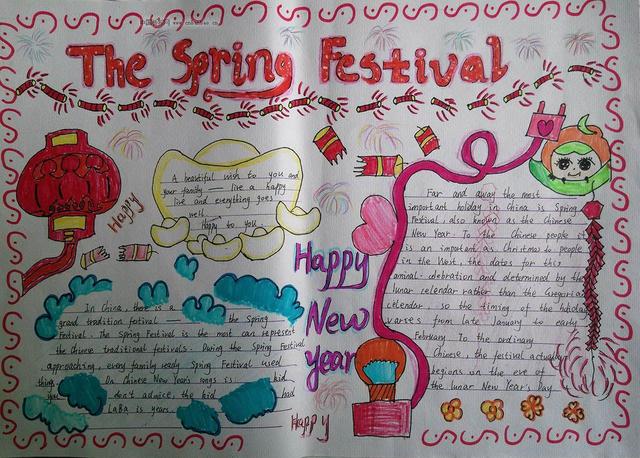 The Spring Festival
A beautiful wish to you and
your family — live a happy
live and everything goes
well.
Happy to you
Happy
In China, there is a
grand tradition fstival — the Spring
Festival. The Spring Festival is the most can represent
the Chinese traditional festivals. During the Spring Festival
approaching, every family ready Spring Festival used
things. Do Chinese New Year's songs is kid
you don't advice, the kid had
LaBa is years.
Happy
Happy
New
year
Far and away the most
important holiday in China is Spring
Festival, also known as the Chinese
New Year. To the Chinese people it
is an important as Christmas to people
in the West. the dates for this
animal debration and determined by the
lunar celendar rather than the Gregorian
citendar, so the timing of the holiday
varses from late January to early
February To the ordinary
Chinese, the festival actually
begions on the eve of
the lunar New Year's Day